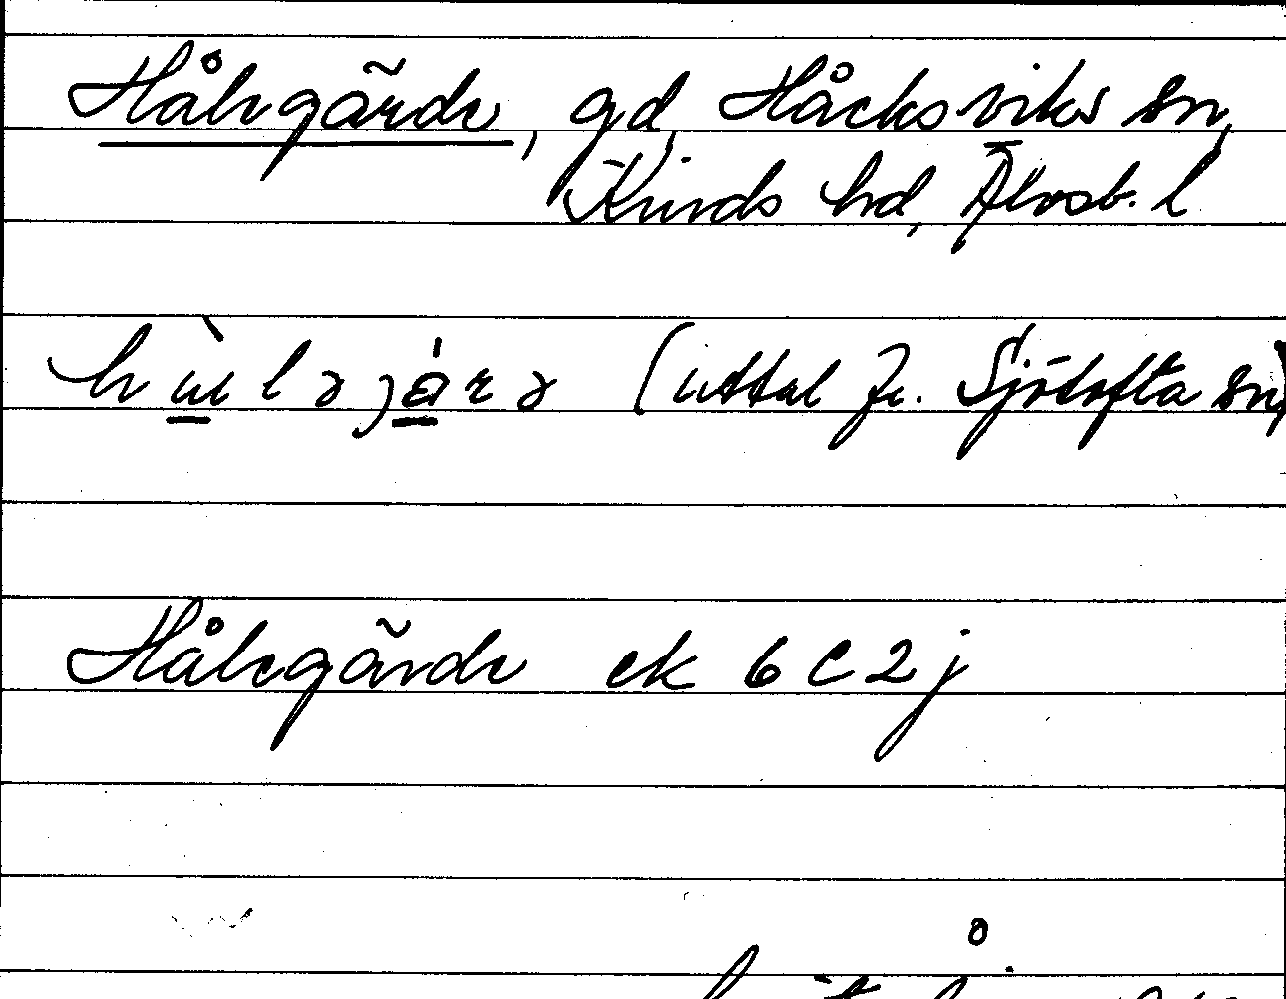 Hålegärde, gd, Håcksviks sn,
Kinds hd, Älvsb. l
(uttal fr. Sjötofta sn)
Hålegärde ek 6C2j